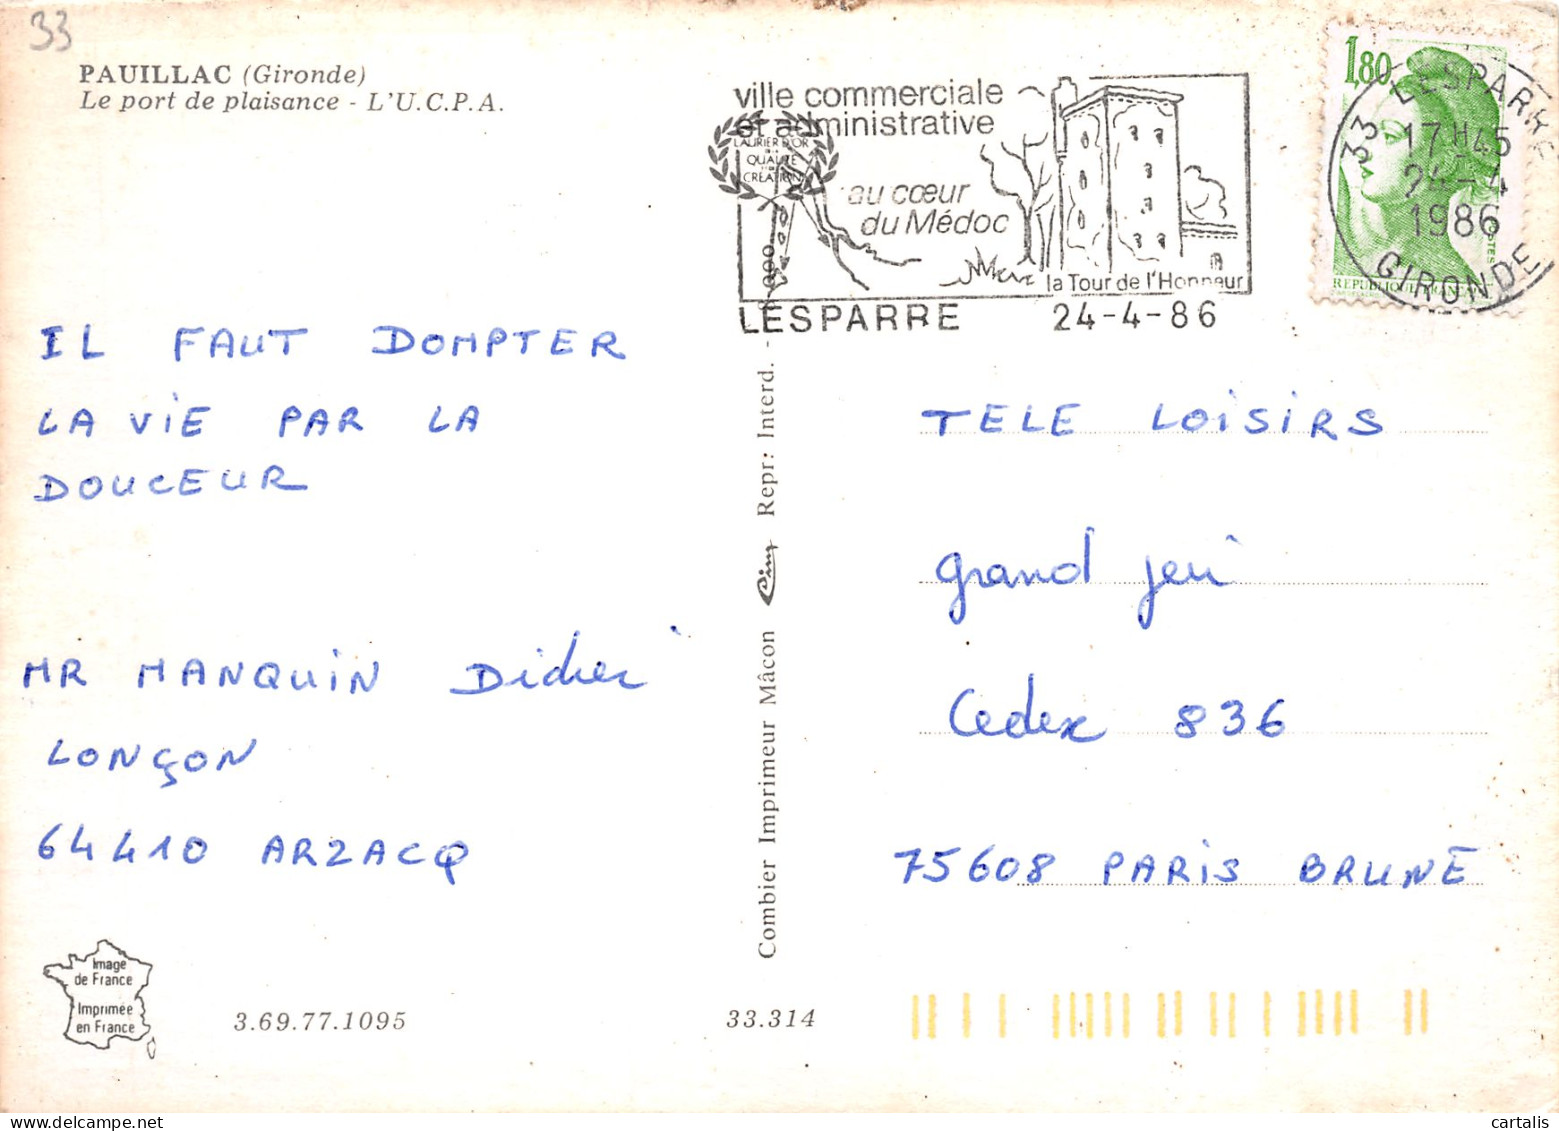 33
PAUILLAC (Gironde)
Le port de plaisance - L'U.C.P.A.
ville commerciale
et administrative
LAURIER D'OR
QUALITÉ
CRÉATION
au cœur
du Médoc
la Tour de l'Honneur
LESPARRE 24-4-86
1,80
33 LESPARRE
17 H 45
24-4
1986
GIRONDE
REPUBLIQUE FRANÇAISE
POSTES
IL FAUT DOMPTER
LA ViE PAR LA
DOUCEUR
MR MANQUIN Didier
LONÇON
64410 ARZACQ
Combier Imprimeur Mâcon Cim Repr: Interd.
TELE LOISIRS
grand jeu
Cedex 836
75608 PARIS BRUNE
Image
de France
Imprimée
en France
3.69.77.1095
33.314
cartalis